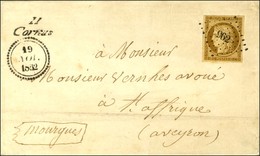 11
Cornus
19
AVRIL
1852
à Monsieur
Monsieur Vernhes avoué
à St affrique
(aveyron)
mourgues